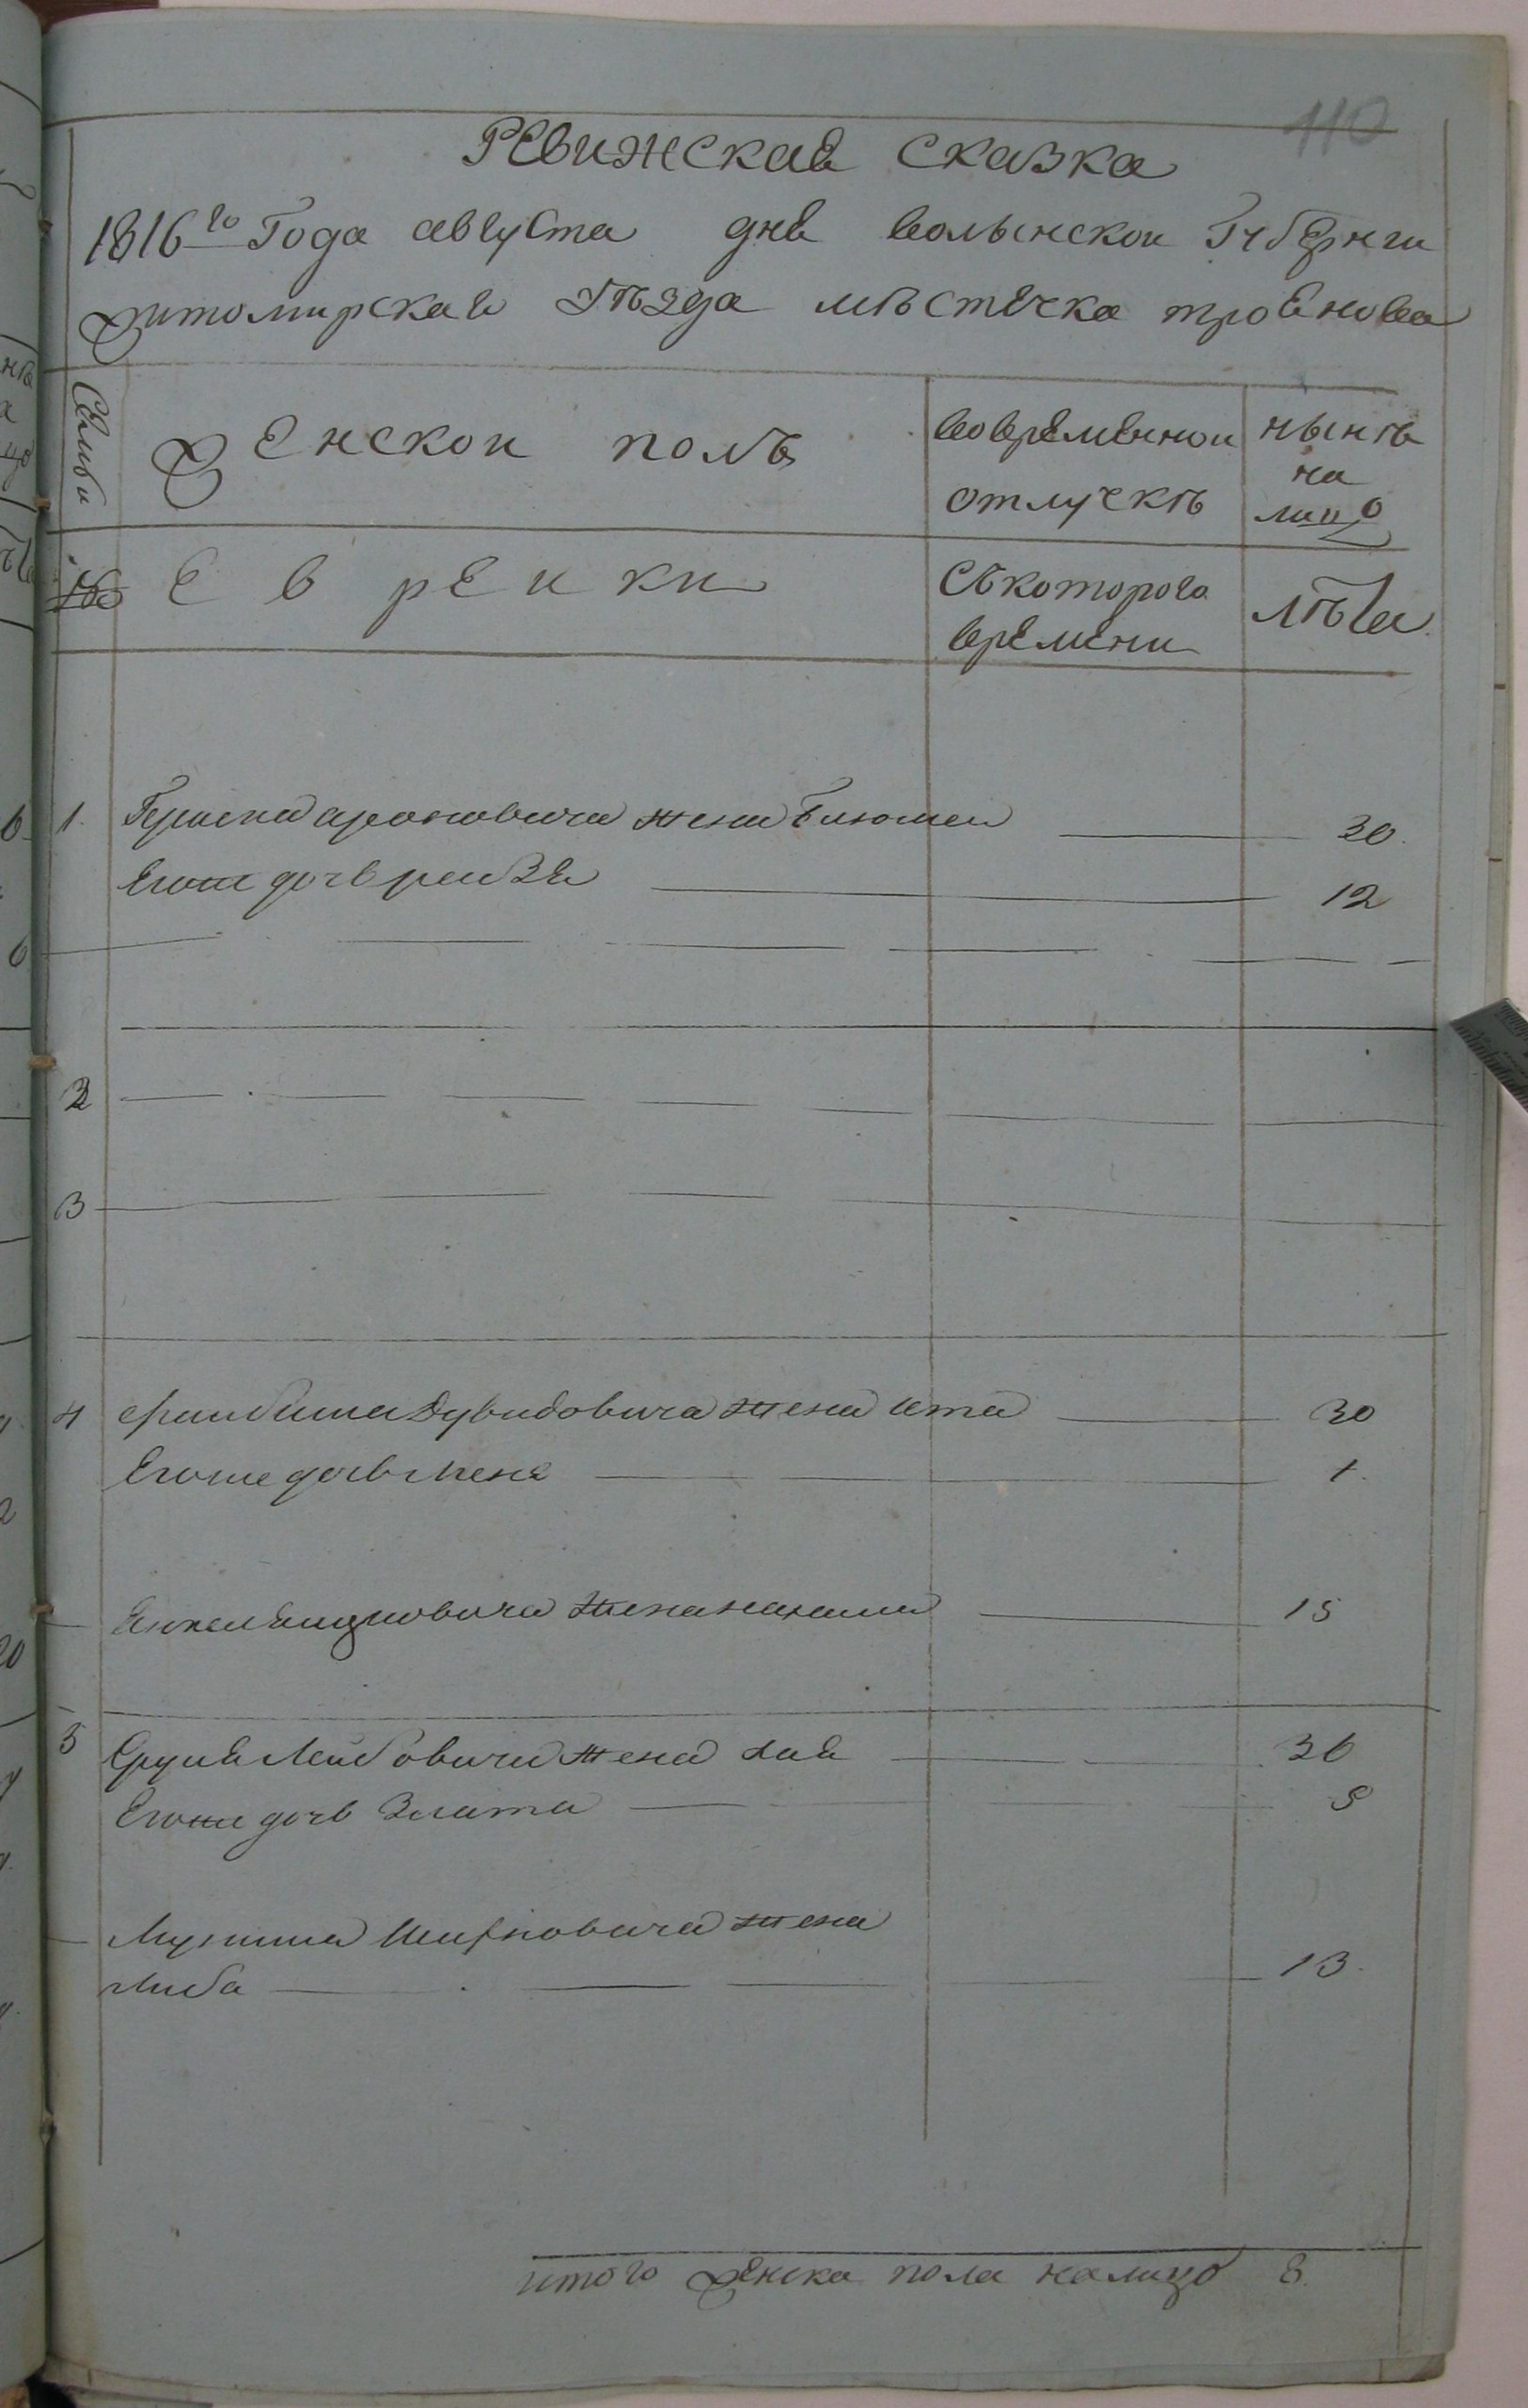 110
РЕвижская сказка
1816го Года августа дня волынской Губернги
житомирская уѣзда мѣстечка троянова
Семьи
Женскои полъ
вовременнои
отлучкѣ
нынѣ
на
лицо
№
Евреики
Съкоторого
времени
Лѣта
1. Гершка ароновича жена Блюма 30.
Егоже дочь реиза 12
2
3
4 Лейбиша Дувидовича жена Ита 30
Егоже дочь 1.
жена 15
5 Лейбовича жена Хая 36
Егоже дочь Злата 5
жена
Либа 13.
итого женска пола налицо 8.